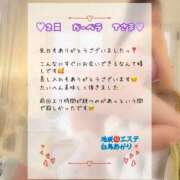 ♡2日 ガーベラ すさま♡
先日もありがとうございましたっ❣️
こんなにすぐにお会いできるなんて嬉
しです🥰
差し入れもありがとうございます😊
たいへん美味しく頂きました
前回より時間が経つのがあっという間
で寂しかったです😢
池袋 エステ
白鳥あかり